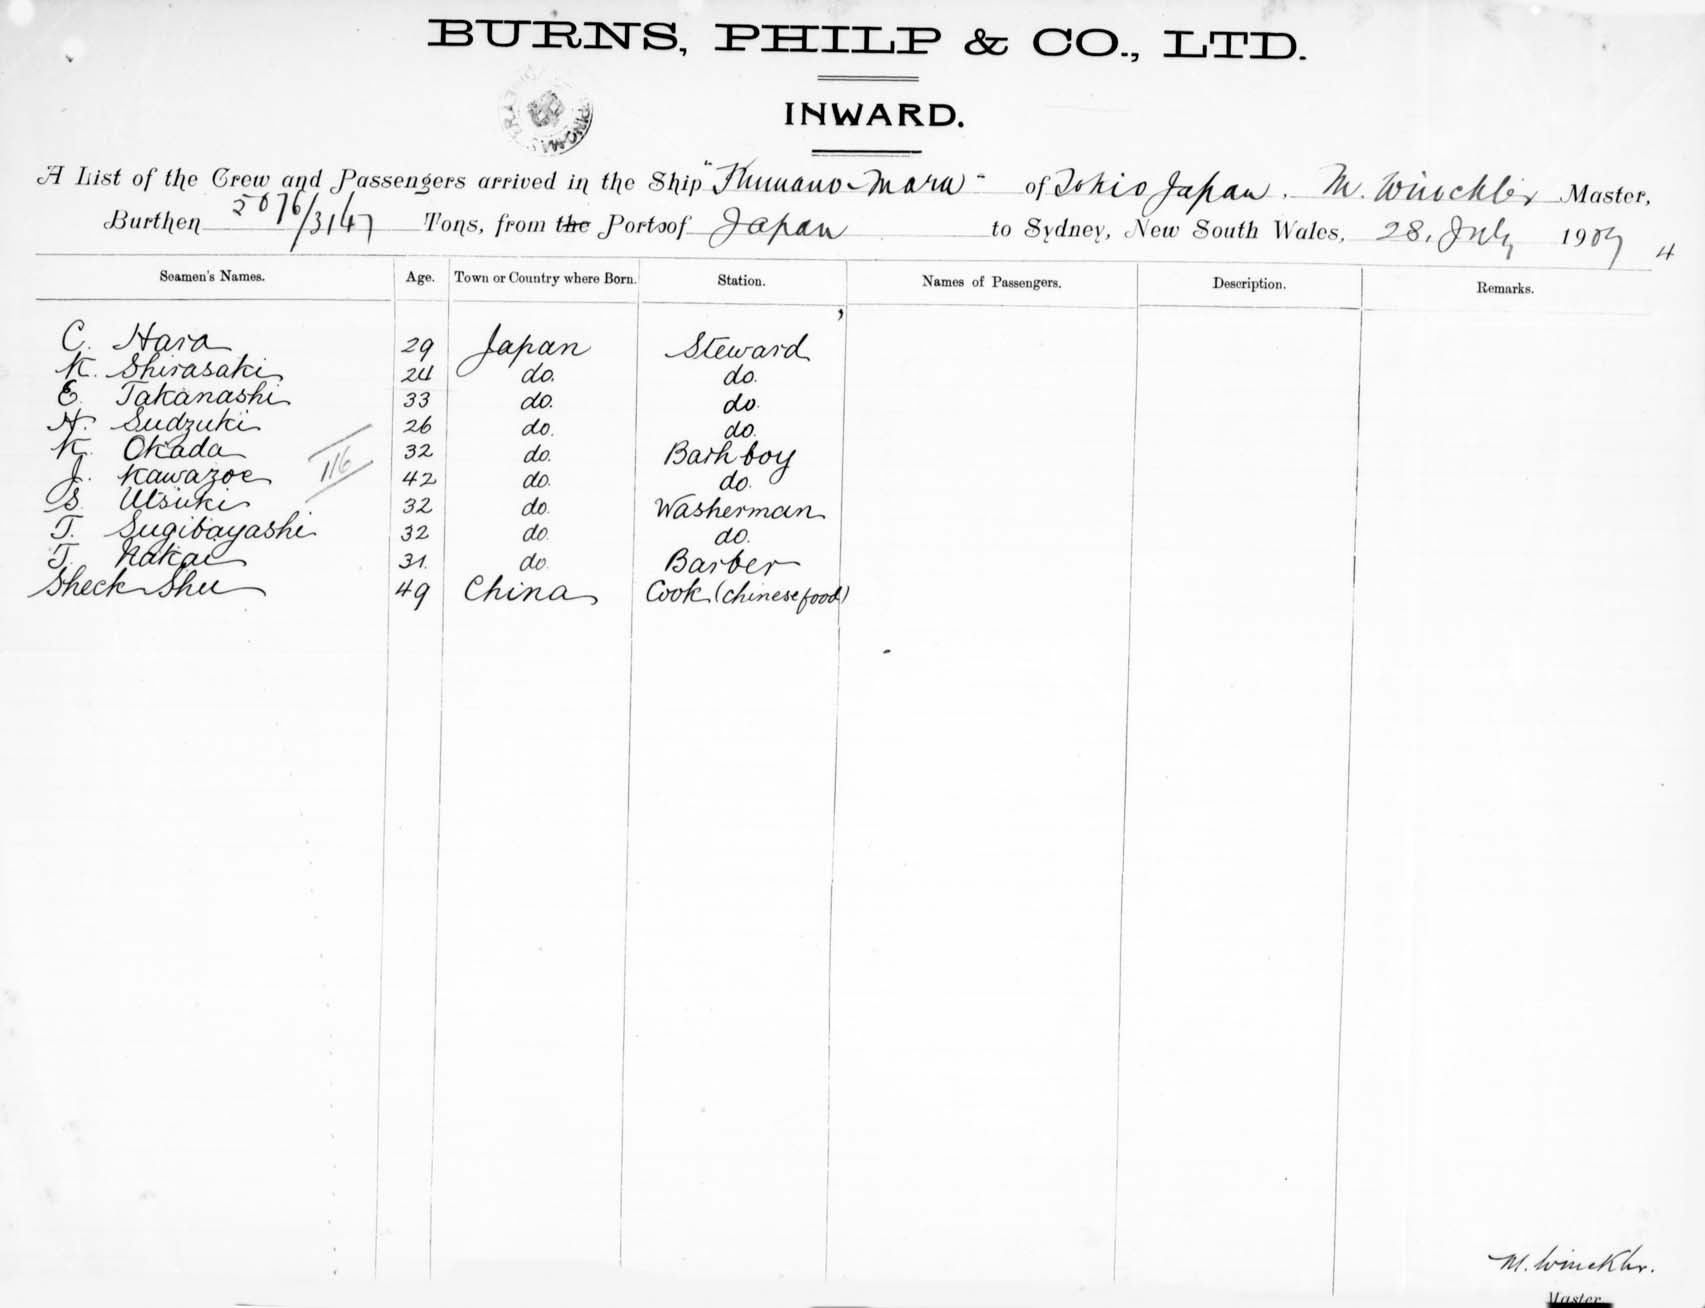 BURNS, PHILP & CO., LTD.
INWARD.
A List of the Crew and Passengers arrived in the Ship "Kumano-Maru" of Tokio Japan. M. Winckler Master,
Burthen 5076/3147 Tons, from the Ports of Japan to Sydney, New South Wales, 28. July 1909 4
Seamen's Names. Age. Town or Country where Born. Station. Names of Passengers. Description. Remarks.
C. Hara 29 Japan Steward
K. Shirasaki 24 do. do.
E. Takanashi 33 do. do.
H. Sudzuki 26 do. do.
K. Okada 32 do. Bath boy
J. Kawazoe 42 do. do.
S. Utsuki 32 do. Washerman
T. Sugibayashi 32 do. do.
T. Nakai 31. do. Barber
Sheck Shu 49 China Cook (chinese food)
116
M. Winckler.
Master